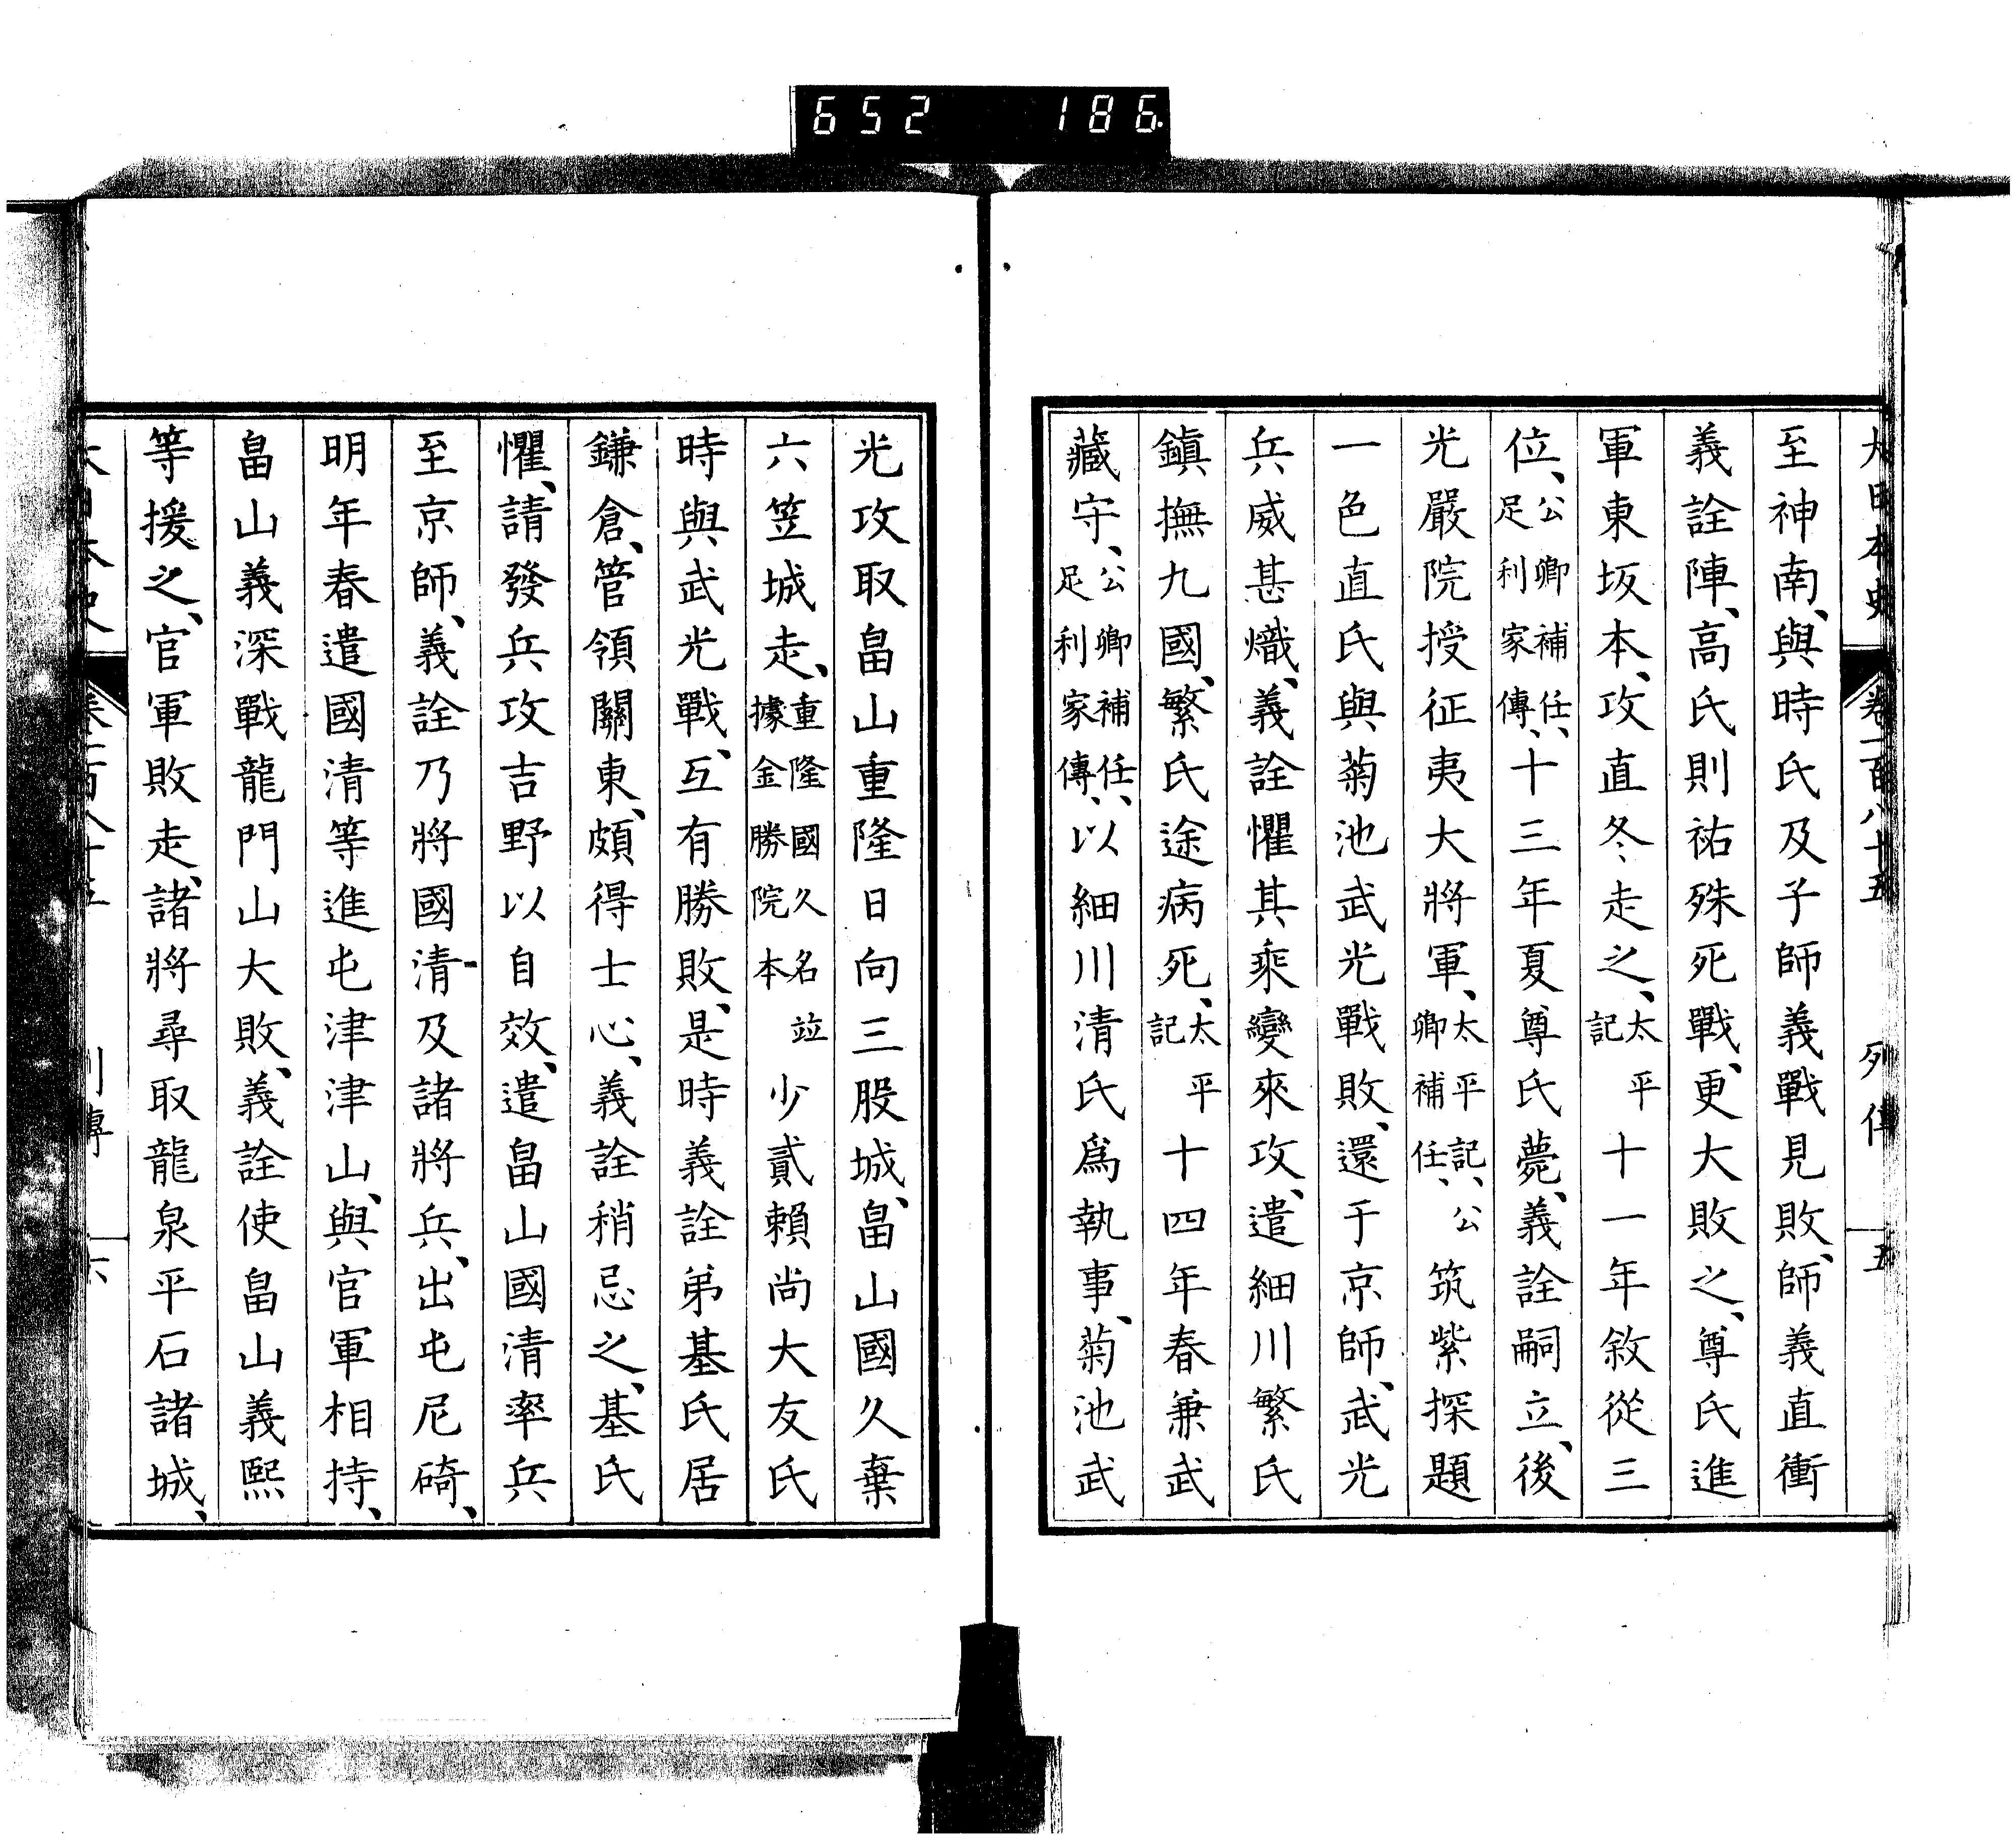 652 186
大日本史 卷一百八十五 列傳 五
至神南、與時氏及子師義戰見敗、師義直衝
義詮陣、高氏則祐殊死戰、更大敗之、尊氏進
軍東坂本、攻直冬、走之、太平記 十一年敘從三
位、公卿補任、足利家傳、十三年夏尊氏薨、義詮嗣立、後
光嚴院授征夷大將軍、太平記、公卿補任、筑紫探題
一色直氏與菊池武光戰敗、還于京師、武光
兵威甚熾、義詮懼其乘變來攻、遣細川繁氏
鎭撫九國、繁氏途病死、太平記 十四年春兼武
藏守、公卿補任、足利家傳、以細川清氏爲執事、菊池武
光攻取畠山重隆日向三股城、畠山國久棄
六笠城走、重隆國久名竝據金勝院本 少貳賴尚大友氏
時與武光戰、互有勝敗、是時義詮弟基氏居
鎌倉、管領關東、頗得士心、義詮稍忌之、基氏
懼、請發兵攻吉野以自效、遣畠山國清率兵
至京師、義詮乃將國清及諸將兵、出屯尼碕、
明年春遣國清等進屯津津山、與官軍相持、
畠山義深戰龍門山大敗、義詮使畠山義熙
等援之、官軍敗走、諸將尋取龍泉平石諸城、
大日本史 卷一百八十五 列傳 六